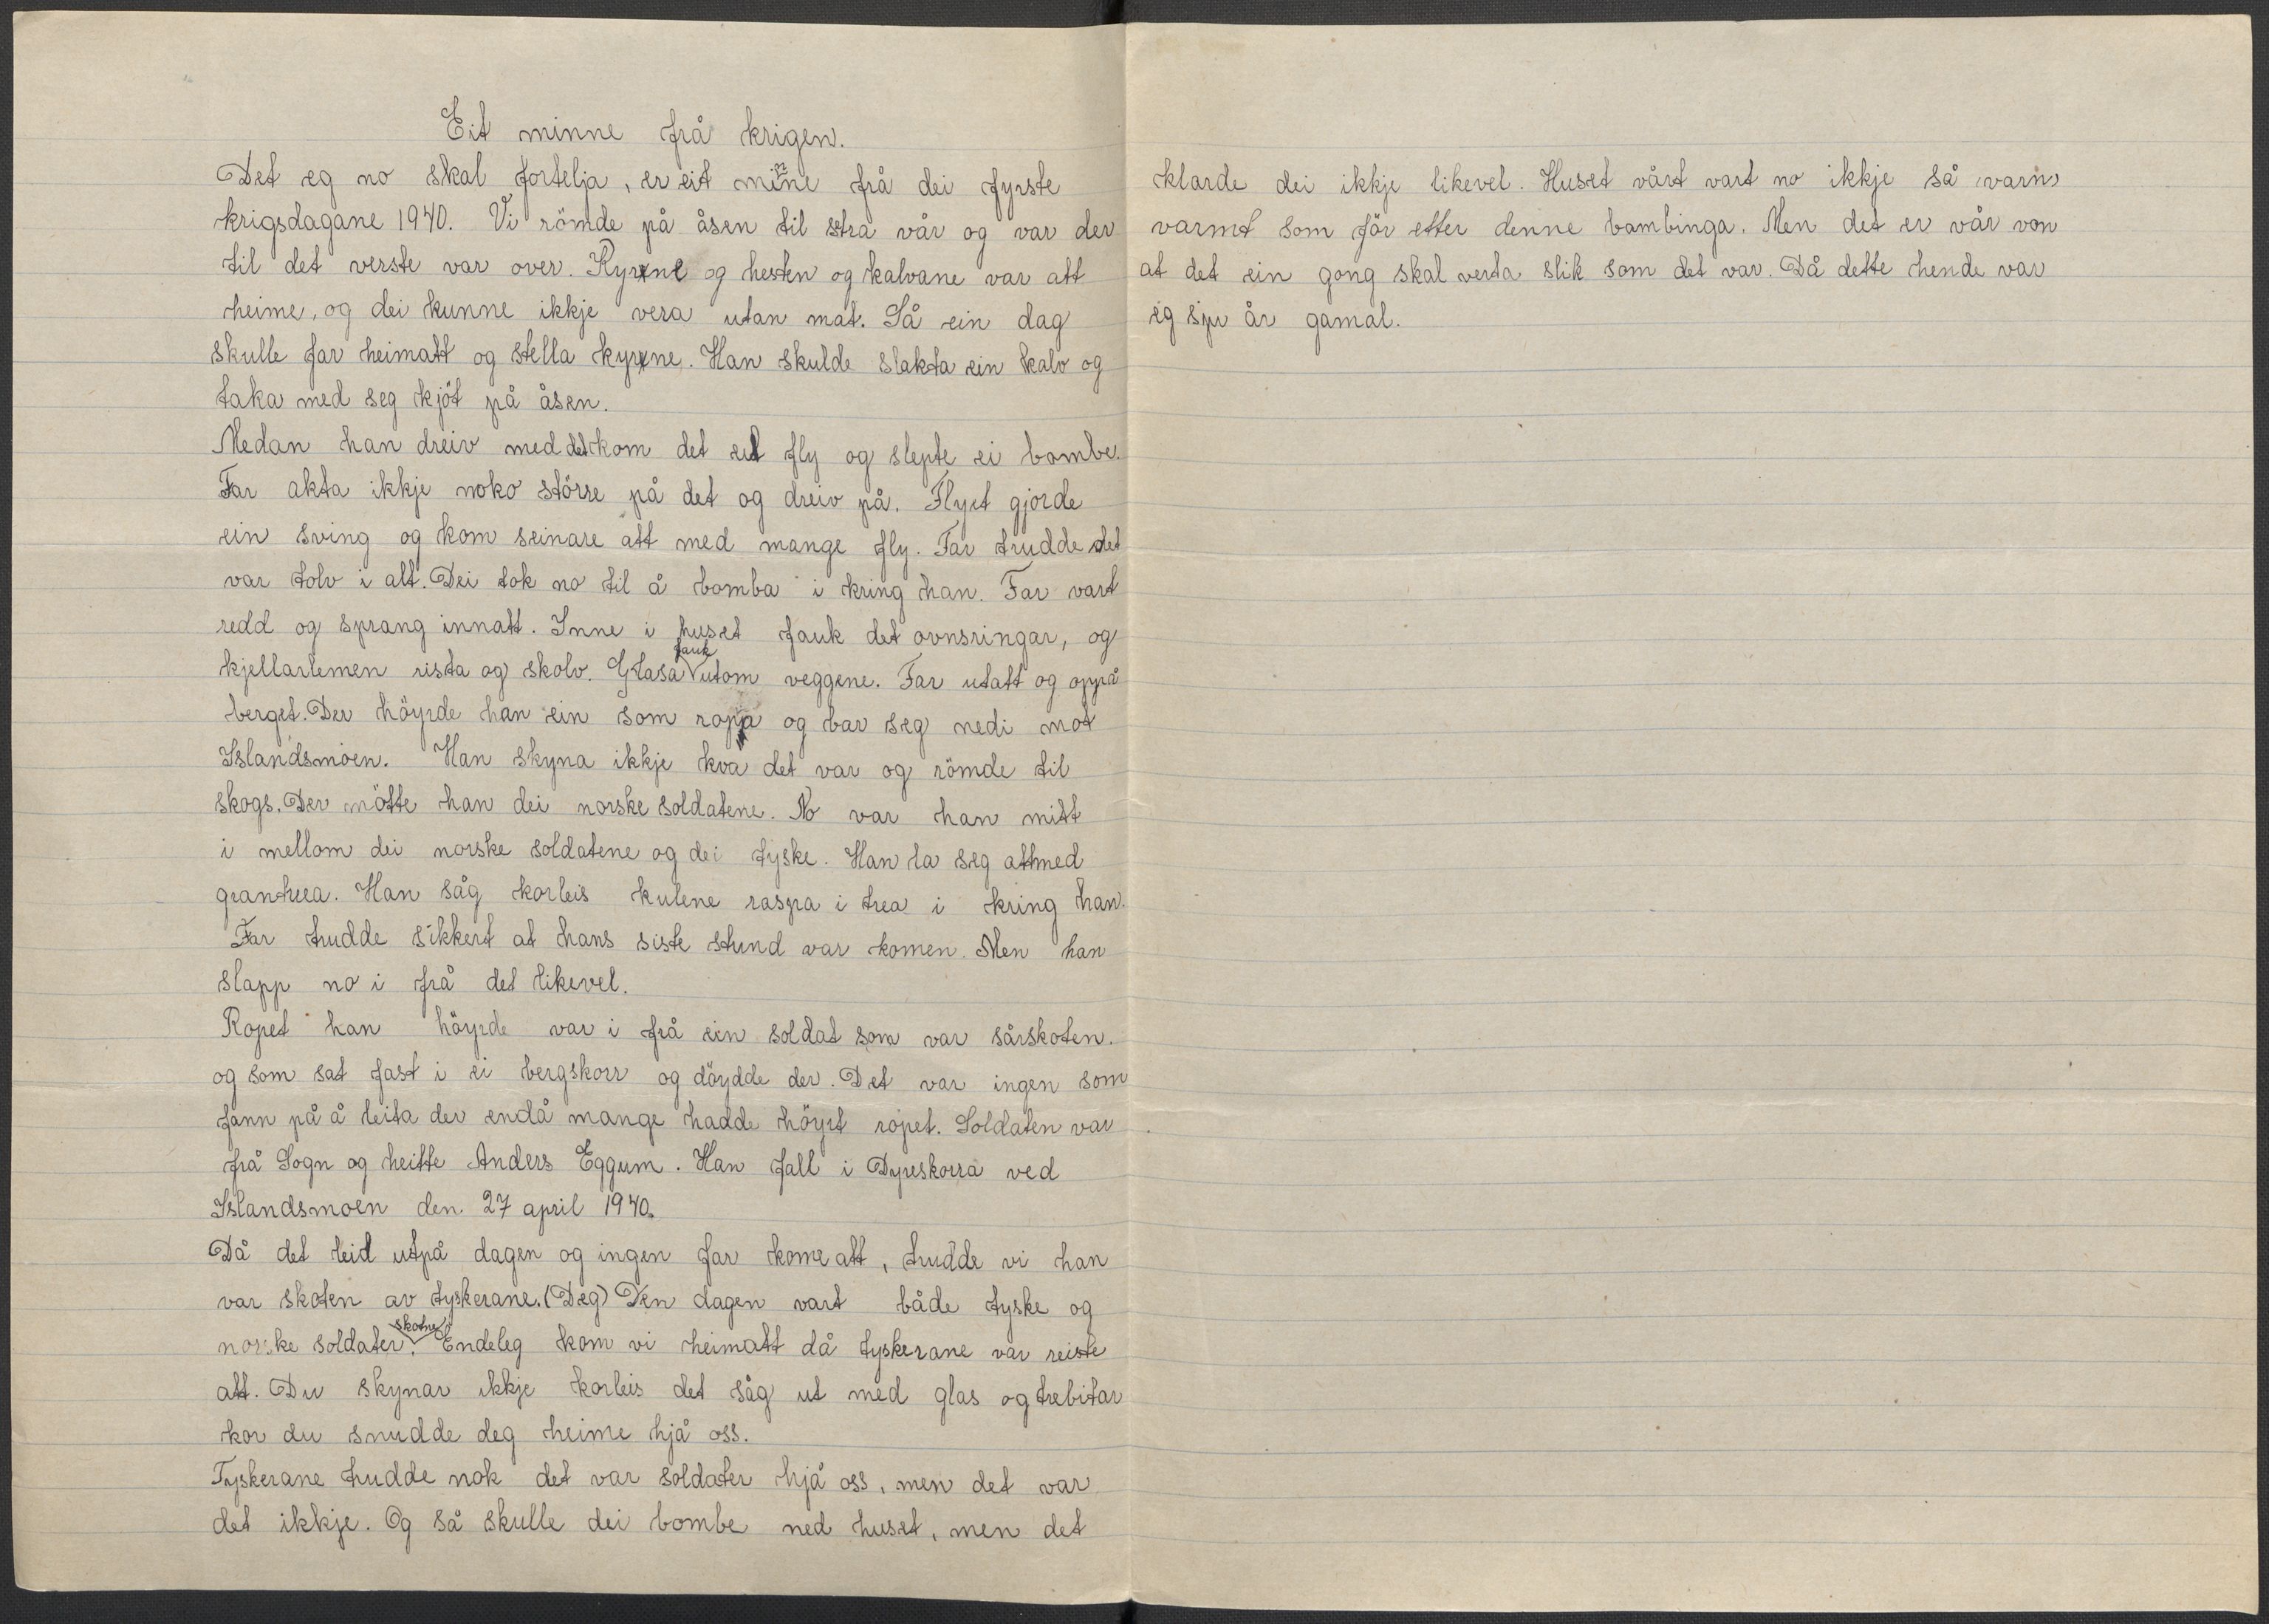 Eit minne frå krigen.
Det eg no skal fortelja, er eit minne frå dei fyrste
krigsdagane 1940. Vi römde på åsen til stra vår og var der
til det verste var over. Kyrne og hesten og kalvane var att
heime, og dei kunne ikkje vera utan mat. Så ein dag
skulle far heimatt og stella kyrne. Han skulde slakta ein kalv og
taka med seg kjöt på åsen.
Medan han dreiv med det kom det eit fly og slepte ei bombe.
Far akta ikkje noko större på det og dreiv på. Flyet gjorde
ein sving og kom seinare att med mange fly. Far trudde det
var tolv i alt. Dei tok no til å bomba i kring han. Far vart
redd og sprang innatt. Inne i huset fauk det ovnsringar, og
kjellarlemen rista og skolv. Glasa fauk utom veggene. Far utatt og oppå
berget. Der höyrde han ein som ropa og bar seg nedi mot
Islandsmoen. Han skyna ikkje kva det var og römde til
skogs. Der mötte han dei norske soldatene. No var han mitt
i mellom dei norske soldatene og dei tyske. Han la seg attmed
grantrea. Han såg korleis kulene raspa i trea i kring han.
Far trudde sikkert at hans siste stund var komen. Men han
slapp no i frå det likevel.
Ropet han höyrde var i frå ein soldat som var sårskoten.
og som sat fast i ei bergskorr og döydde der. Det var ingen som
fann på å leita der endå mange hadde höyrt ropet. Soldaten var
frå Sogn og heitte Anders Eggum. Han fall i Dyreskorra ved
Islandsmoen den 27 april 1940.
Då det leid utpå dagen og ingen far kome att, trudde vi han
var skoten av tyskerane. (Deg) Den dagen vart både tyske og
norske soldater skotne. Endeleg kom vi heimatt då tyskerane var reiste
att. Du skynar ikkje korleis det såg ut med glas og trebitar
kor du snudde deg heime hjå oss.
Tyskerane trudde nok det var soldater hjå oss, men det var
det ikkje. Og så skulle dei bombe ned huset, men det
klarde dei ikkje likevel. Huset vårt vart no ikkje så varn
varmt som för etter denne bambinga. Men det er vår von
at det ein gong skal verta slik som det var. Då dette hende var
eg sju år gamal.